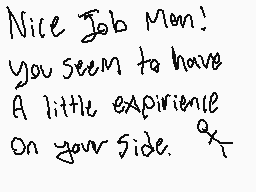 Nice Job Man!
you seem to have
A little expirience
on your side.